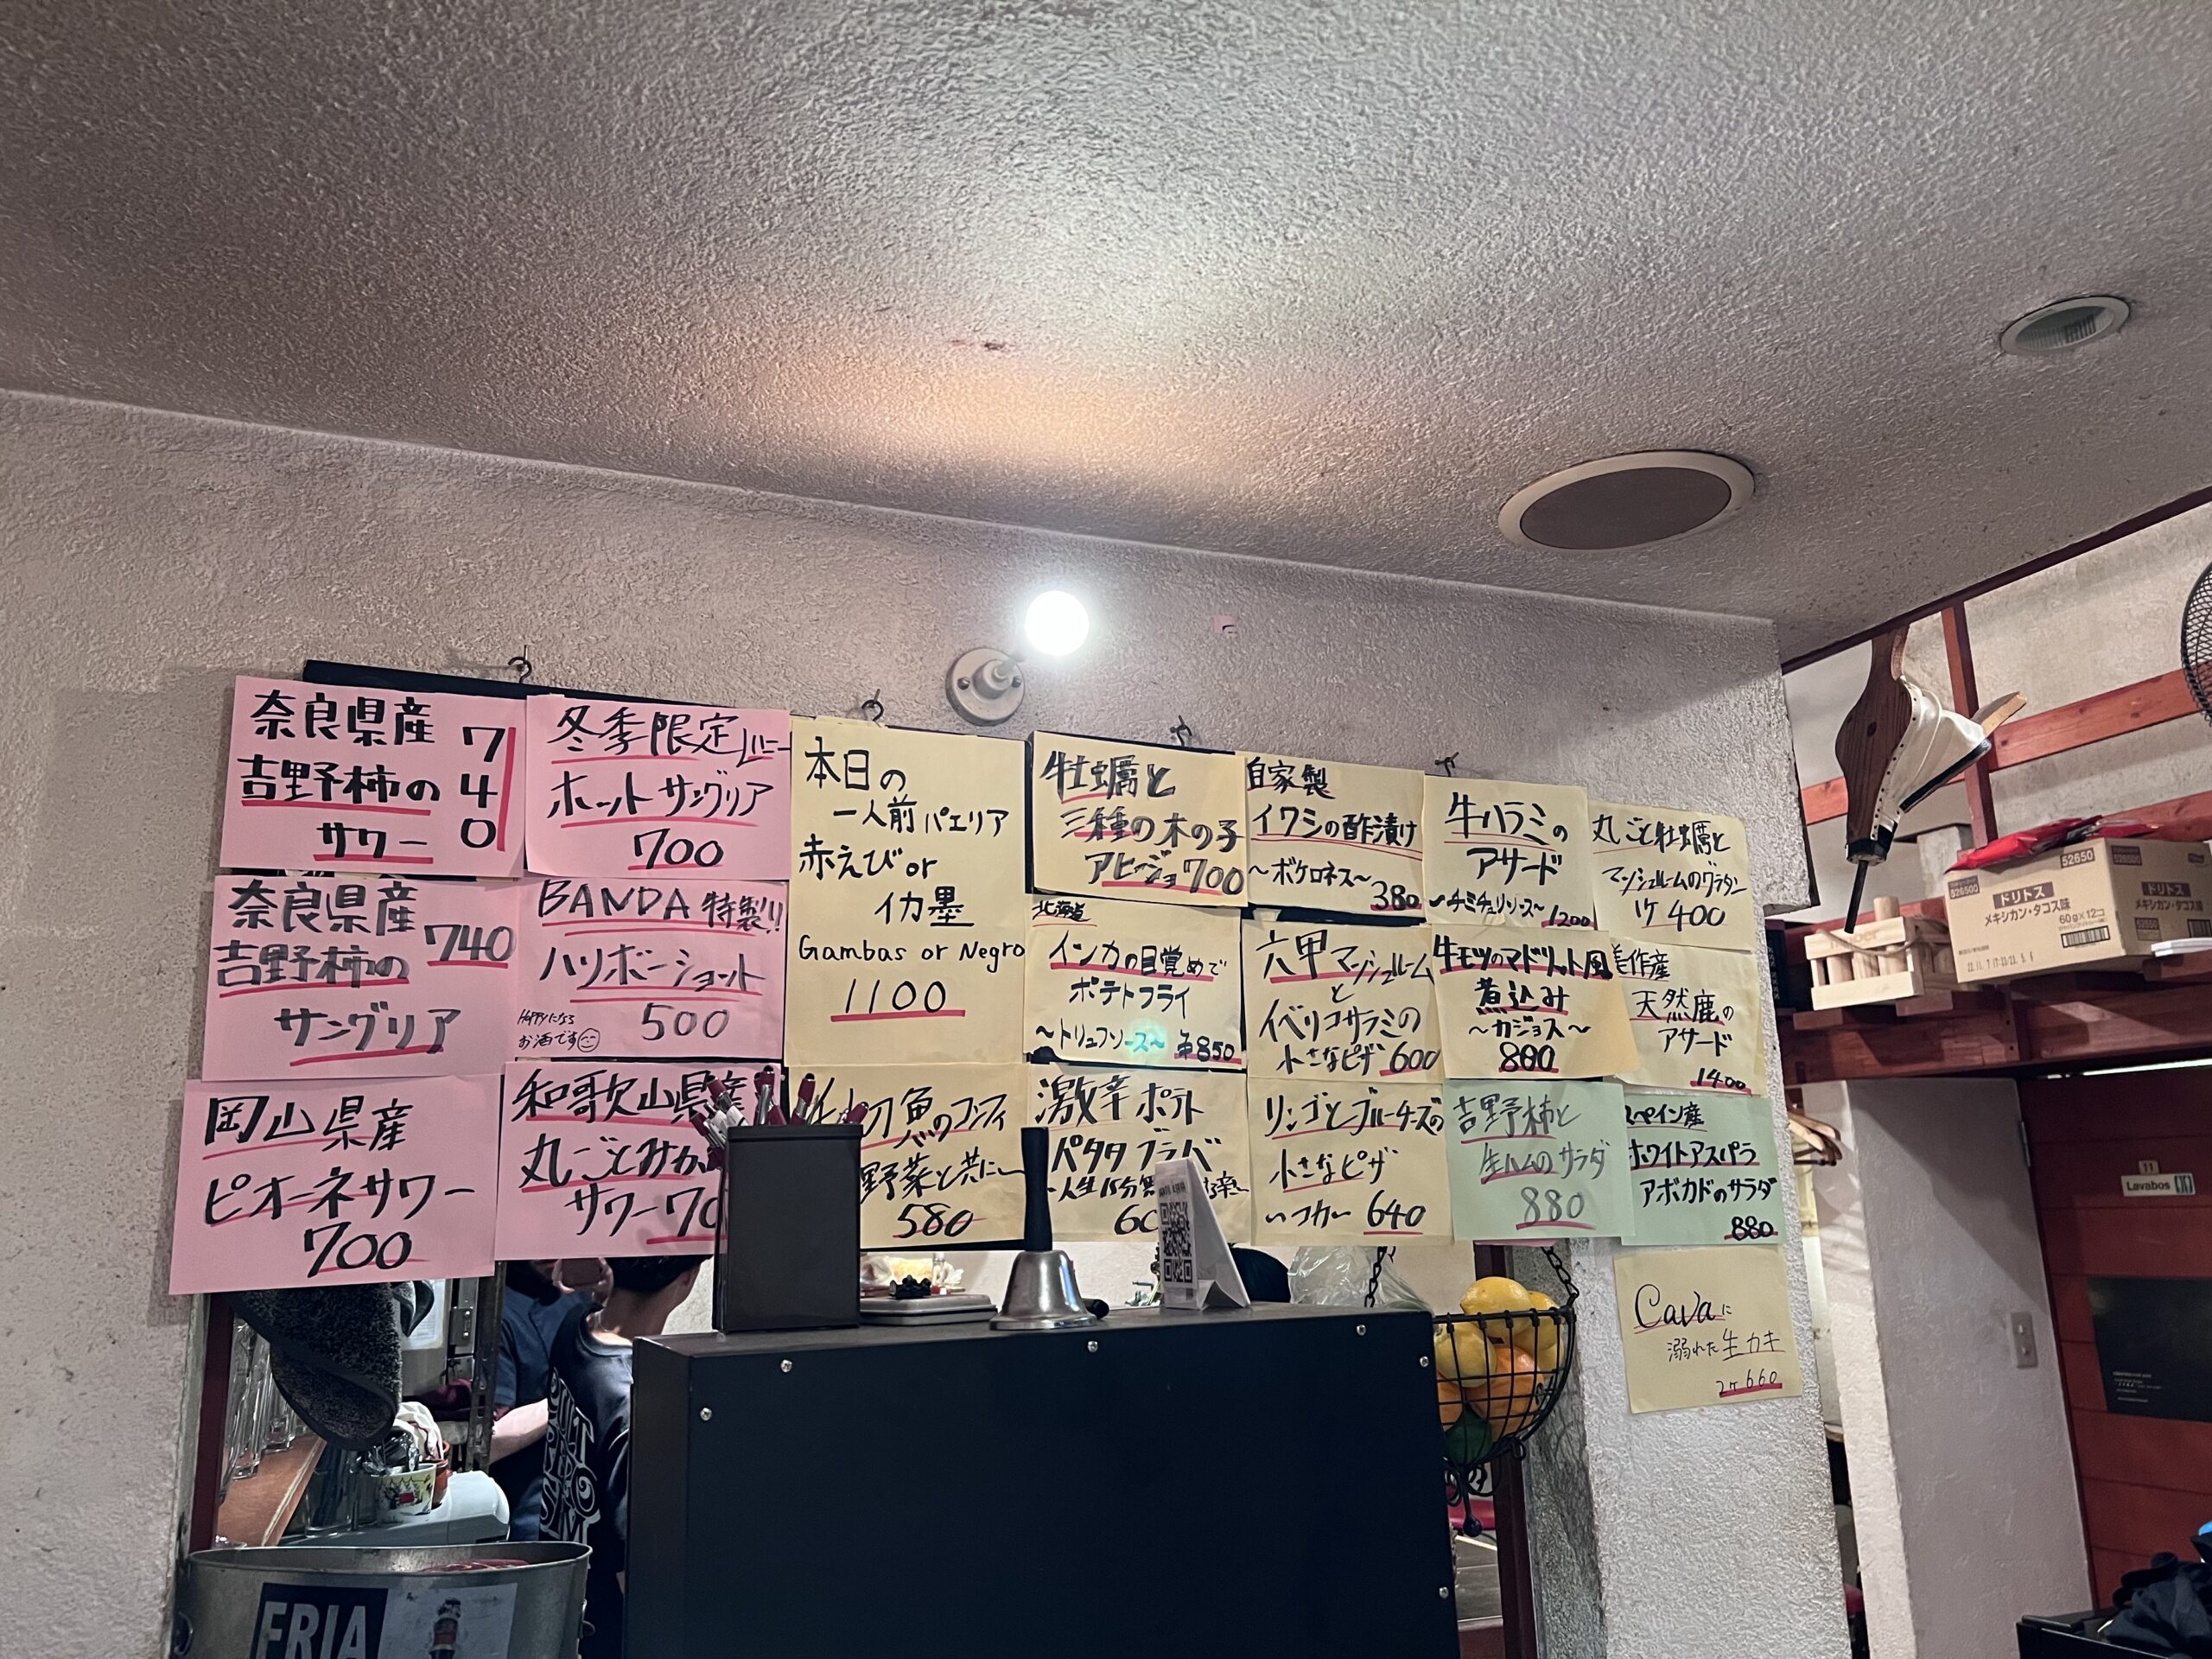 奈良県産
吉野柿の
サワー
740
冬季限定
ホットサングリア
700
奈良県産
吉野柿の
740
サングリア
BANDA 特製!!
ハリボーショット
500
Happyになる
お酒です
岡山県産
ピオーネサワー
700
和歌山県産
丸ごとみか
サワー 70
本日の
一人前パエリア
赤えび or
イカ墨
Gambas or Negro
1100
刀魚のコンフィ
野菜と共に〜
580
牡蠣と
三種の木の子
アヒージョ 700
北海道
インカの目覚めで
ポテトフライ
〜トリュフソース〜 850
激辛ポテト
パタタブラバ
人生15分無
自家製
イワシの酢漬け
〜ボケロネス〜
380
六甲マッシュルーム
と
イベリコサラミの
小さなピザ 600
リンゴとブルーチーズの
小さなピザ
640
牛ハラミの
アサード
〜チミチュリソース〜 1200
牛モツのマドリット風
煮込み
〜カジョス〜
800
吉野柿と
生ハムのサラダ
880
丸ごと牡蠣と
マッシュルームのグラタン
1ケ 400
美作産
天然鹿の
アサード
1400
スペイン産
ホワイトアスパラ
アボカドのサラダ
880
Cavaに
溺れた生カキ
2ケ 660
ドリトス
メキシカン・タコス味
60g×12コ
52650
11
Lavabos
ERIA